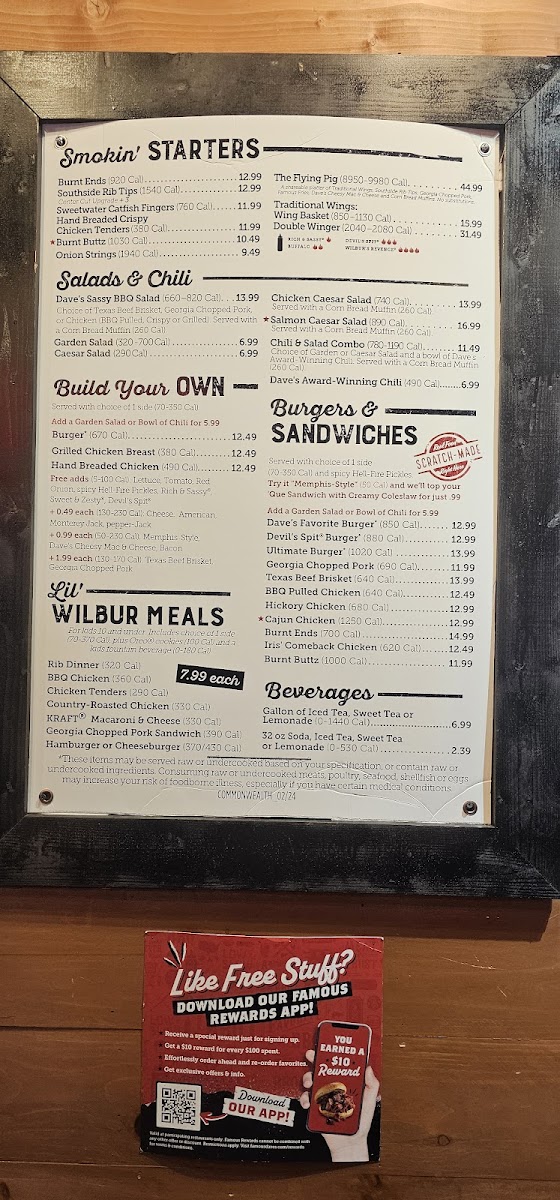 Smokin' STARTERS
Burnt Ends (920 Cal)..............12.99
Southside Rib Tips (1540 Cal)..............12.99
Center Cut Upgrade + 3
Sweetwater Catfish Fingers (760 Cal)........11.99
Hand Breaded Crispy
Chicken Tenders (380 Cal)..............11.99
★Burnt Buttz (1030 Cal)..............10.49
Onion Strings (1940 Cal)..............9.49
The Flying Pig (8950-9980 Cal)..............44.99
A shareable platter of Traditional Wings, Southside Rib Tips, Georgia Chopped Pork,
Famous Fries, Dave's Cheesy Mac & Cheese and Corn Bread Muffins. No substitutions.
Traditional Wings:
Wing Basket (850-1130 Cal)..............15.99
Double Winger (2040-2080 Cal)..............31.49
RICH & SASSY® DEVIL'S SPIT®
BUFFALO WILBUR'S REVENGE®
Salads & Chili
Dave's Sassy BBQ Salad (660-820 Cal)...13.99
Choice of Texas Beef Brisket, Georgia Chopped Pork,
or Chicken (BBQ Pulled, Crispy or Grilled). Served with
a Corn Bread Muffin (260 Cal)
Garden Salad (320-700 Cal)..............6.99
Caesar Salad (290 Cal)..............6.99
Chicken Caesar Salad (740 Cal)..............13.99
Served with a Corn Bread Muffin (260 Cal)
★Salmon Caesar Salad (890 Cal)..............16.99
Served with a Corn Bread Muffin (260 Cal)
Chili & Salad Combo (780-1190 Cal)..............11.49
Choice of Garden or Caesar Salad and a bowl of Dave's
Award-Winning Chili. Served with a Corn Bread Muffin
(260 Cal)
Dave's Award-Winning Chili (490 Cal)........6.99
Build Your OWN
Served with choice of 1 side (70-350 Cal)
Add a Garden Salad or Bowl of Chili for 5.99
Burger* (670 Cal)..............12.49
Grilled Chicken Breast (380 Cal)..............12.49
Hand Breaded Chicken (490 Cal)..............12.49
Free adds (5-100 Cal) Lettuce, Tomato, Red
Onion, spicy Hell-Fire Pickles, Rich & Sassy®
Sweet & Zesty®, Devil's Spit®
+ 0.49 each (130-230 Cal): Cheese: American,
Monterey Jack, pepper-Jack
+ 0.99 each (50-230 Cal): Memphis-Style,
Dave's Cheesy Mac & Cheese, Bacon
+ 1.99 each (130-170 Cal): Texas Beef Brisket,
Georgia Chopped Pork
Lil'
WILBUR MEALS
For kids 10 and under. Includes choice of 1 side
(70-370 Cal), plus Oreo® cookies (100 Cal) and a
kids fountain beverage (0-180 Cal)
7.99 each
Rib Dinner (320 Cal)
BBQ Chicken (360 Cal)
Chicken Tenders (290 Cal)
Country-Roasted Chicken (330 Cal)
KRAFT® Macaroni & Cheese (330 Cal)
Georgia Chopped Pork Sandwich (390 Cal)
Hamburger or Cheeseburger (370/430 Cal)
Burgers &
SANDWICHES
Real Food
SCRATCH-MADE
Right Here
Served with choice of 1 side
(70-350 Cal) and spicy Hell-Fire Pickles
Try it "Memphis-Style" (80 Cal) and we'll top your
'Que Sandwich with Creamy Coleslaw for just .99
Add a Garden Salad or Bowl of Chili for 5.99
Dave's Favorite Burger* (850 Cal)..............12.99
Devil's Spit® Burger* (880 Cal)..............12.99
Ultimate Burger* (1020 Cal)..............13.99
Georgia Chopped Pork (690 Cal)..............11.99
Texas Beef Brisket (640 Cal)..............13.99
BBQ Pulled Chicken (640 Cal)..............12.49
Hickory Chicken (680 Cal)..............12.99
★Cajun Chicken (1250 Cal)..............12.99
Burnt Ends (700 Cal)..............14.99
Iris' Comeback Chicken (620 Cal)..............12.49
Burnt Buttz (1000 Cal)..............11.99
Beverages
Gallon of Iced Tea, Sweet Tea or
Lemonade (0-1440 Cal)..............6.99
32 oz Soda, Iced Tea, Sweet Tea
or Lemonade (0-530 Cal)..............2.39
*These items may be served raw or undercooked based on your specification, or contain raw or
undercooked ingredients. Consuming raw or undercooked meats, poultry, seafood, shellfish or eggs
may increase your risk of foodborne illness, especially if you have certain medical conditions.
COMMONWEALTH 02/24
Like Free Stuff?
DOWNLOAD OUR FAMOUS
REWARDS APP!
Receive a special reward just for signing up.
Get a $10 reward for every $100 spent.
Effortlessly order ahead and re-order favorites.
Get exclusive offers & info.
YOU
EARNED A
$10
Reward
Download
OUR APP!
Valid at participating restaurants only. Famous Rewards cannot be combined with
any other offer or discount.